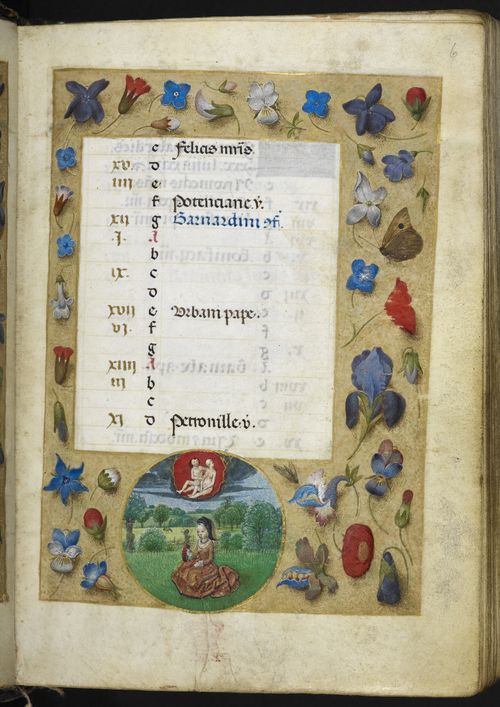 6
felicis mr̃is.
xv d
iiii e
f Potenciane v.
xii g Barnardini ꝯf
.i. A
b
ix. c
d
xvii e Vrbani pape.
vi. f
g
xiiii A
iii b
c
xi d Petronille .v.